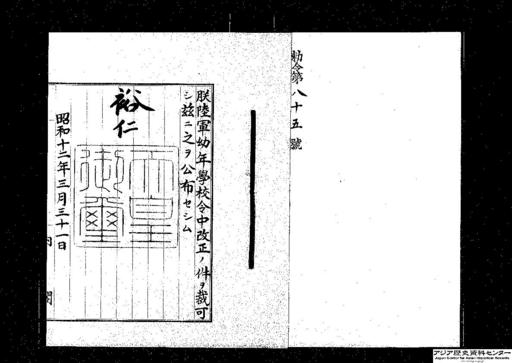 勅令第八十五號
朕陸軍幼年學校令中改正ノ件ヲ裁可
シ茲ニ之ヲ公布セシム
裕仁
天皇御璽
昭和十二年三月三十一日
内閣
アジア歴史資料センター
Japan Center for Asian Historical Records